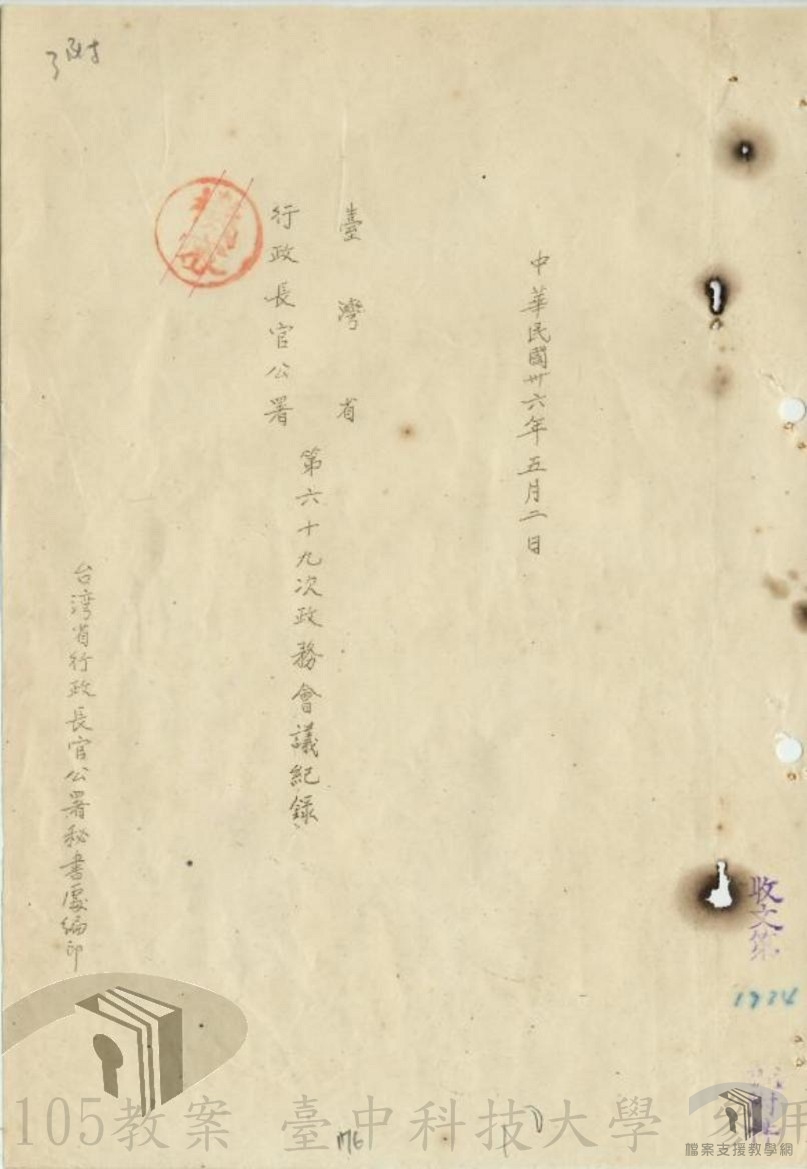 中華民國卅六年五月二日
臺灣省
行政長官公署
第六十九次政務會議紀錄
台湾省行政長官公署秘書處編印
收文第
1934
附
176
105教案 臺中科技大學
檔案支援教學網